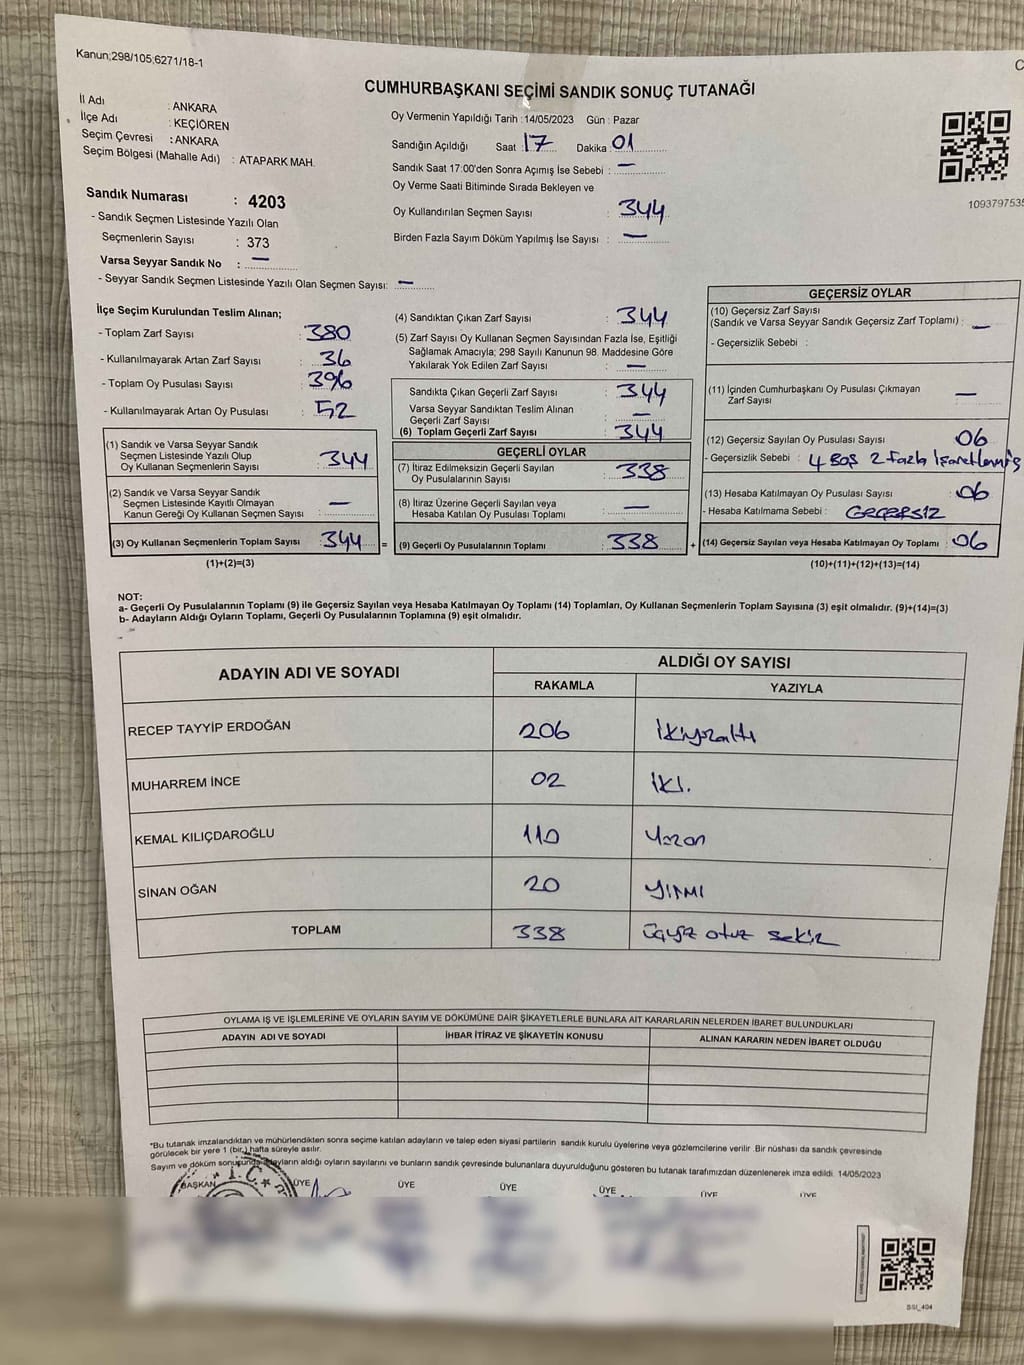 Kanun;298/105;6271/18-1
CUMHURBAŞKANI SEÇİMİ SANDIK SONUÇ TUTANAĞI
İl Adı : ANKARA
İlçe Adı : KEÇİÖREN
Seçim Çevresi : ANKARA
Seçim Bölgesi (Mahalle Adı) : ATAPARK MAH.
Oy Vermenin Yapıldığı Tarih :14/05/2023 Gün : Pazar
Sandığın Açıldığı Saat : 17 Dakika : 01
Sandık Saat 17:00'den Sonra Açımış İse Sebebi : —
Oy Verme Saati Bitiminde Sırada Bekleyen ve
Oy Kullandırılan Seçmen Sayısı : 344
Birden Fazla Sayım Döküm Yapılmış İse Sayısı : —
1093797535
Sandık Numarası : 4203
- Sandık Seçmen Listesinde Yazılı Olan
Seçmenlerin Sayısı : 373
Varsa Seyyar Sandık No : —
- Seyyar Sandık Seçmen Listesinde Yazılı Olan Seçmen Sayısı: —
İlçe Seçim Kurulundan Teslim Alınan;
- Toplam Zarf Sayısı : 380
- Kullanılmayarak Artan Zarf Sayısı : 36
- Toplam Oy Pusulası Sayısı : 396
- Kullanılmayarak Artan Oy Pusulası : 52
(1) Sandık ve Varsa Seyyar Sandık
Seçmen Listesinde Yazılı Olup
Oy Kullanan Seçmenlerin Sayısı : 344
(2) Sandık ve Varsa Seyyar Sandık
Seçmen Listesinde Kayıtlı Olmayan
Kanun Gereği Oy Kullanan Seçmen Sayısı : —
(3) Oy Kullanan Seçmenlerin Toplam Sayısı : 344 =
(1)+(2)=(3)
(4) Sandıktan Çıkan Zarf Sayısı : 344
(5) Zarf Sayısı Oy Kullanan Seçmen Sayısından Fazla İse, Eşitliği
Sağlamak Amacıyla; 298 Sayılı Kanunun 98. Maddesine Göre
Yakılarak Yok Edilen Zarf Sayısı : —
Sandıkta Çıkan Geçerli Zarf Sayısı : 344
Varsa Seyyar Sandıktan Teslim Alınan
Geçerli Zarf Sayısı : —
(6) Toplam Geçerli Zarf Sayısı : 344
GEÇERLİ OYLAR
(7) İtiraz Edilmeksizin Geçerli Sayılan
Oy Pusulalarının Sayısı : 338
(8) İtiraz Üzerine Geçerli Sayılan veya
Hesaba Katılan Oy Pusulası Toplamı : —
(9) Geçerli Oy Pusulalarının Toplamı : 338 +
GEÇERSİZ OYLAR
(10) Geçersiz Zarf Sayısı
(Sandık ve Varsa Seyyar Sandık Geçersiz Zarf Toplamı) : —
- Geçersizlik Sebebi :
(11) İçinden Cumhurbaşkanı Oy Pusulası Çıkmayan
Zarf Sayısı : —
(12) Geçersiz Sayılan Oy Pusulası Sayısı : 06
- Geçersizlik Sebebi : 4 Boş 2 Fazla İşaretlenmiş
(13) Hesaba Katılmayan Oy Pusulası Sayısı : 06
- Hesaba Katılmama Sebebi : GEÇERSİZ
(14) Geçersiz Sayılan veya Hesaba Katılmayan Oy Toplamı : 06
(10)+(11)+(12)+(13)=(14)
NOT:
a- Geçerli Oy Pusulalarının Toplamı (9) ile Geçersiz Sayılan veya Hesaba Katılmayan Oy Toplamı (14) Toplamları, Oy Kullanan Seçmenlerin Toplam Sayısına (3) eşit olmalıdır. (9)+(14)=(3)
b- Adayların Aldığı Oyların Toplamı, Geçerli Oy Pusulalarının Toplamına (9) eşit olmalıdır.
ADAYIN ADI VE SOYADI
ALDIĞI OY SAYISI
RAKAMLA YAZIYLA
RECEP TAYYİP ERDOĞAN 206 İkiyüzaltı
MUHARREM İNCE 02 İKİ.
KEMAL KILIÇDAROĞLU 110 Yüzon
SİNAN OĞAN 20 YİRMİ
TOPLAM 338 üçyüz otuz sekiz
OYLAMA İŞ VE İŞLEMLERİNE VE OYLARIN SAYIM VE DÖKÜMÜNE DAİR ŞİKAYETLERLE BUNLARA AİT KARARLARIN NELERDEN İBARET BULUNDUKLARI
ADAYIN ADI VE SOYADI İHBAR İTİRAZ VE ŞİKAYETİN KONUSU ALINAN KARARIN NEDEN İBARET OLDUĞU
*Bu tutanak imzalandıktan ve mühürlendikten sonra seçime katılan adayların ve talep eden siyasi partilerin sandık kurulu üyelerine veya gözlemcilerine verilir. Bir nüshası da sandık çevresinde
görülecek bir yere 1 (bir) hafta süreyle asılır.
Sayım ve döküm sonucunda adayların aldığı oyların sayılarını ve bunların sandık çevresinde bulunanlara duyurulduğunu gösteren bu tutanak tarafımızdan düzenlenerek imza edildi. 14/05/2023
BAŞKAN ÜYE ÜYE ÜYE ÜYE ÜYE ÜYE
T.C.
SSI_404